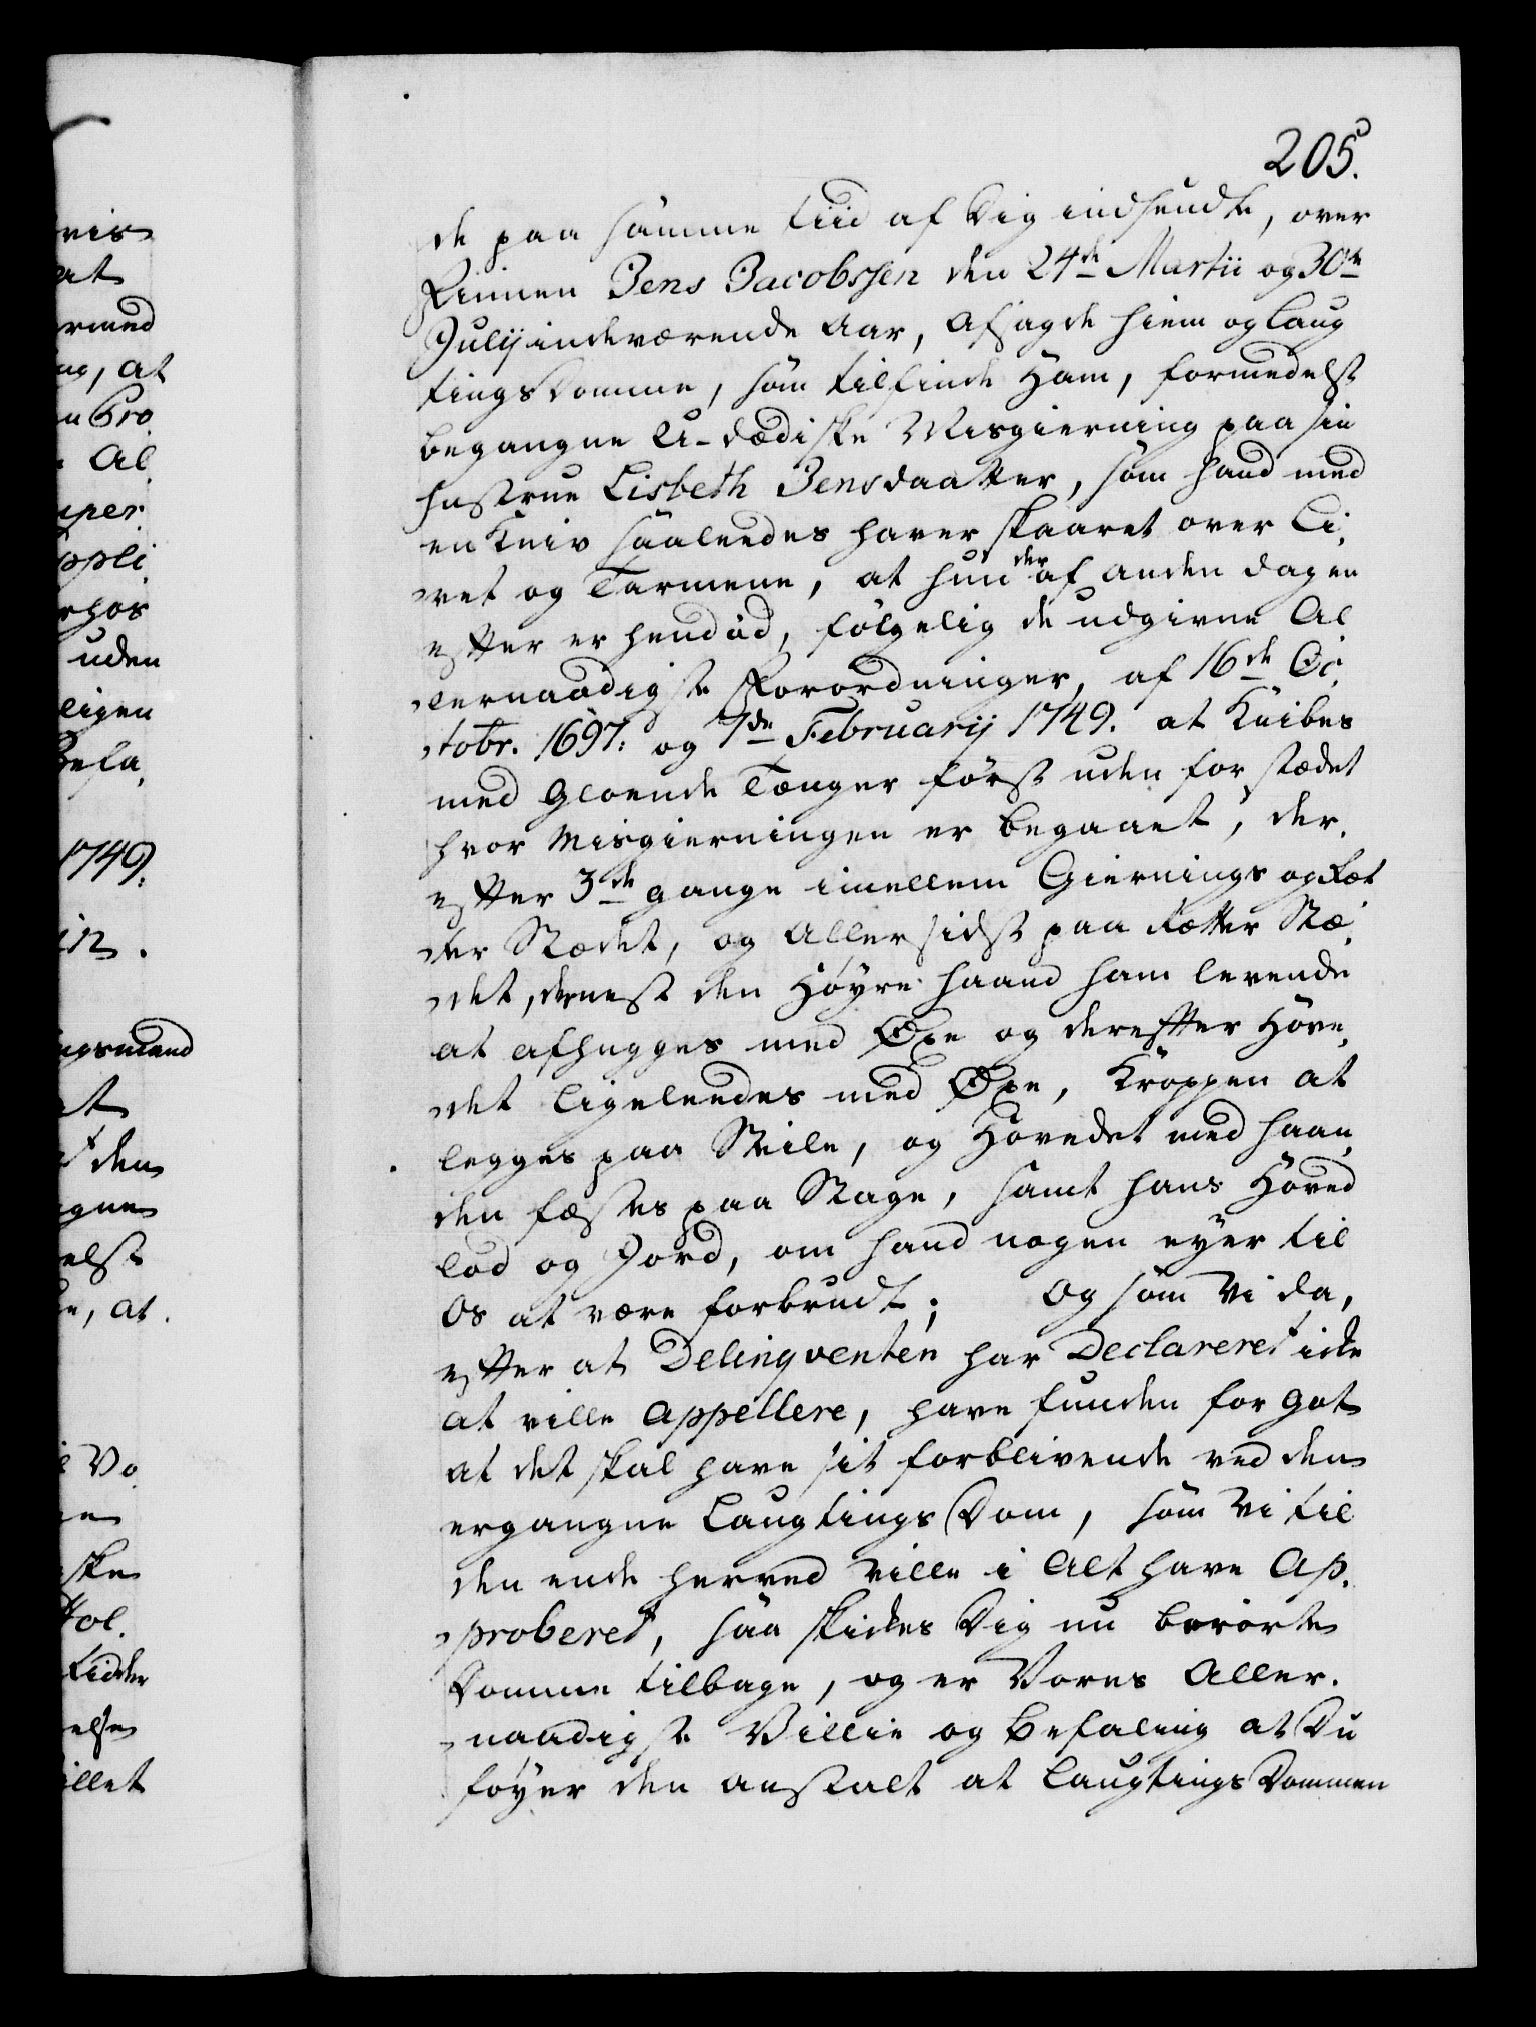 205.
de paa samme tiid af Dig indsendte, over
Finnen Jens Jacobssen den 24de Martii og 30te
Julij indeværende Aar, afsagde Hiem og Laug
tings Domme, som tilfinde Ham, formedelst
begangne U-dædiske Misgierning paa sin
hustrue Lisbeth Jensdaatter, som hand med
en Kniv saaledes haver skaaret over Li,
vet og Tarmene, at hun der af anden dagen
efter er hendød, følgelig de udgivne Al
lernaadigste Forordninger, af 16de Oc,
tobr. 1697: og 7de Februarij 1749. at Knibes
med Gloende Tænger først uden for stædet
hvor Misgierningen er begaaet, der,
efter 3de gange imellem Giernings og Ret
ter Stædet, og Allersidst paa Retter Stæ,
det, dernest den Høyre Haand ham levende
at afhugges med Øxe og derefter Hove,
det ligeleedes med Øxe, Kroppen at
legges paa Steile, og Hovedet med Haan,
den fæstes paa Stage, samt hans Hoved
lod og Jord, om hand nogen eyer til
Os at være forbrudt; Og som Vi da,
efter at Delinqventen har Declareret icke
at ville Appellere, have funden for got
at det skal have sit forblivende ved den
ergangne Laugtings Dom, som Vi til
den ende herved ville i Alt have Ap,
proberet, saa skickes Dig nu berørte
Domme tilbage, og er Vores Aller,
naadigste Villie og Befaling at Du
føyer den anstalt at Laugtings Dommen